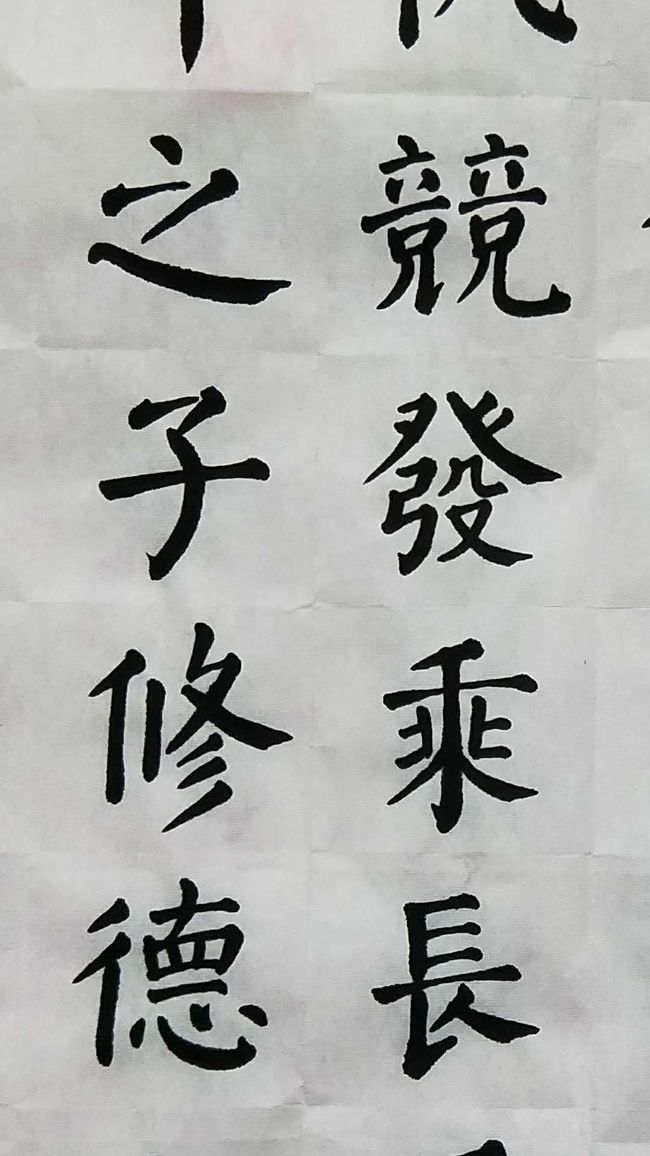 競發乘長
之子修德